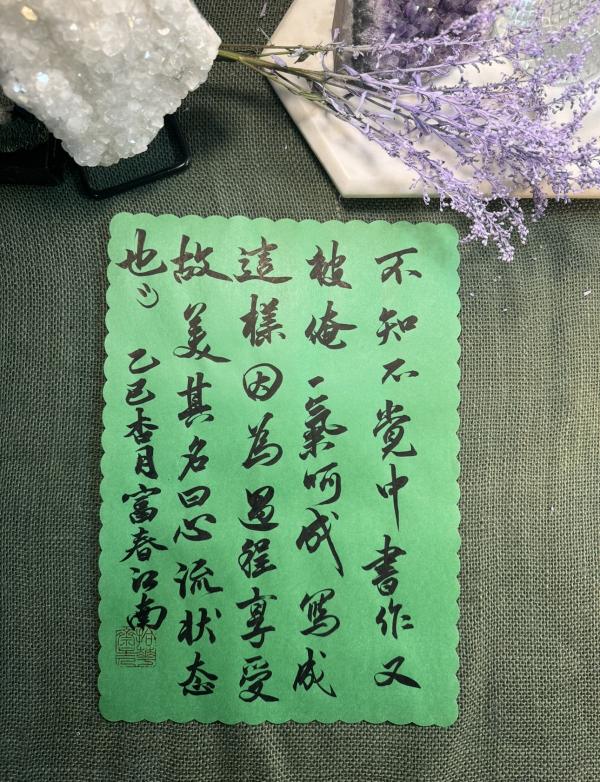 不知不觉中書作又
被俺一氣呵成寫成
這樣因為過程享受
故美其名曰心流状态
也
乙巳杏月富春江南